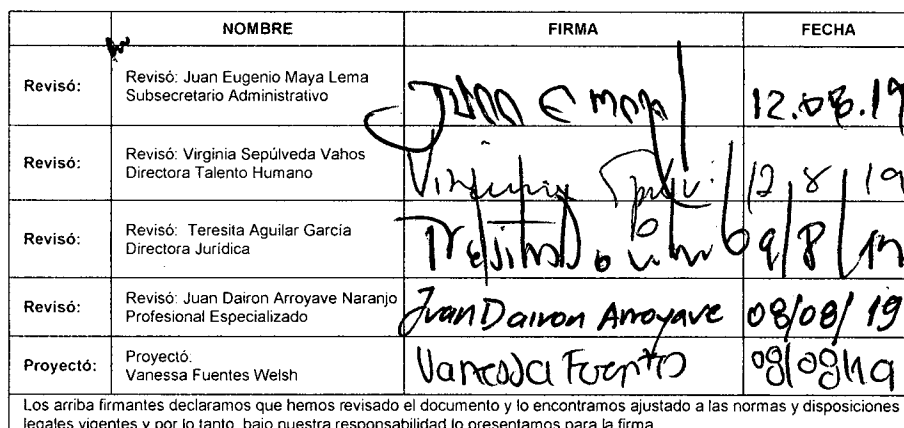 NOMBRE FIRMA FECHA
Revisó: Revisó: Juan Eugenio Maya Lema
Subsecretario Administrativo
Juan E Maya 12.08.19
Revisó: Revisó: Virginia Sepúlveda Vahos
Directora Talento Humano
Virginia 12/8/19
Revisó: Revisó: Teresita Aguilar García
Directora Jurídica
9/8/19
Revisó: Revisó: Juan Dairon Arroyave Naranjo
Profesional Especializado
Juan Dairon Arroyave 08/08/19
Proyectó: Proyectó:
Vanessa Fuentes Welsh
Vanessa Fuentes 08/08/19
Los arriba firmantes declaramos que hemos revisado el documento y lo encontramos ajustado a las normas y disposiciones
legales vigentes y por lo tanto, bajo nuestra responsabilidad lo presentamos para la firma.